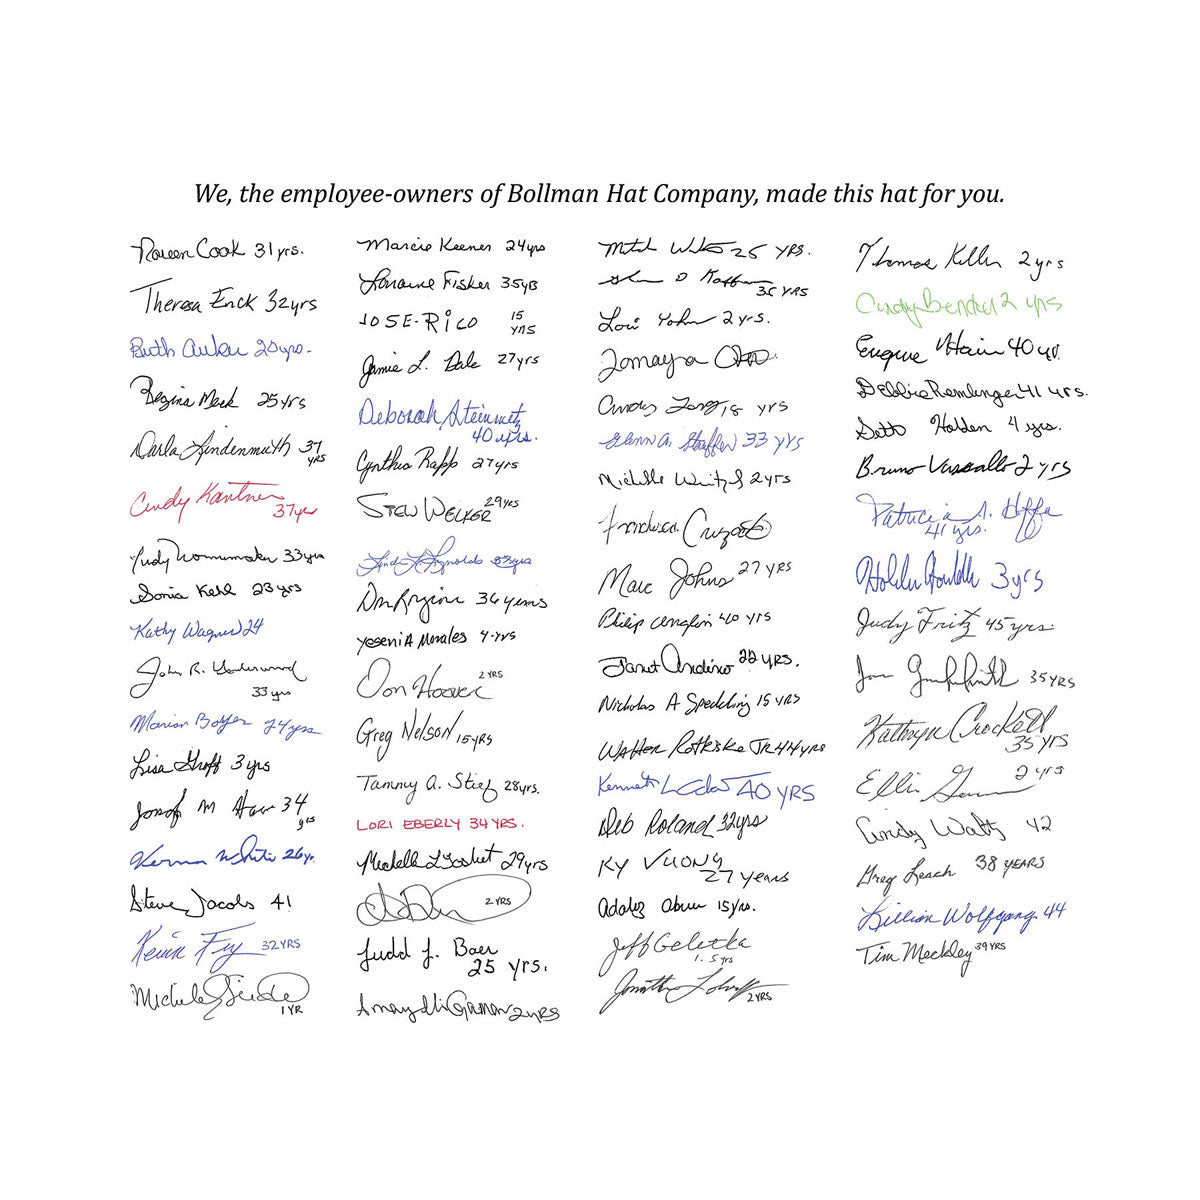 We, the employee-owners of Bollman Hat Company, made this hat for you.
Cook 31 yrs.
Theresa Enck 32 yrs
Ruth Auker 20 yrs.
Regina Meck 25 yrs
Darla Lindenmuth 37
YRS
Cindy Kantner
37 yr
Judy 33 yrs
Sonia Kehl 23 yrs
Kathy Wagner 24
John R. Underwood
33 yrs
Marian Boyer 24 yrs
Lisa Groff 3 yrs
Josef M 34
yrs
26 yr.
Steve Jacobs 41
Kevin Fry 32 YRS
Michele
1 YR
Marcie Keener 24 yrs
Lorraine Fisher 35 yrs
JOSE-RICO 15
yrs
Jamie L. Dale 27 yrs
Deborah Steinmetz
40 yrs.
Cynthia Rapp 27 yrs
STEW WELKER 29 YRS
Linda L. Reynolds 33 yrs
36 years
YeseniA Morales 4-yrs
Don Hoover 2 YRS
Greg Nelson 15 YRS
Tammy A. Stief 28 yrs.
LORI EBERLY 34 YRS.
Michelle 29 yrs
2 YRS
Judd J. Baer
25 yrs.
2 YRS
Mitch 25 YRS.
D
35 YRS
Lori Yohn 2 yrs.
Tomayra
Cindy 18 yrs
Glenn A. Stauffer 33 yrs
Michelle 2 yrs
Marc Johns 27 YRS
Philip 40 yrs
Janet Andino 22 YRS.
Nicholas A 15 YRS
Walter Rothiske JR 44 YRS
Kenneth 40 YRS
Deb Roland 32 yrs
KY VUONG
27 years
15 yrs.
Jeff Geletka
1.5 yrs
Jonathan
2 YRS
Thomas Keller 2 yrs
Cindy 2 yrs
Eugene 40 yr.
Debbie Remlinger 41 yrs.
Seth Holden 4 yrs.
Bruno Vassallo 2 yrs
Patricia A. Hoffa
41 yrs.
3 yrs
Judy Fritz 45 yrs.
35 YRS
Kathryn Crockett
35 YRS
Ellis
2 yrs
Cindy Waltz 42
Greg Leach 38 YEARS
Lillian Wolfgang 44
Tim Meckley 39 YRS